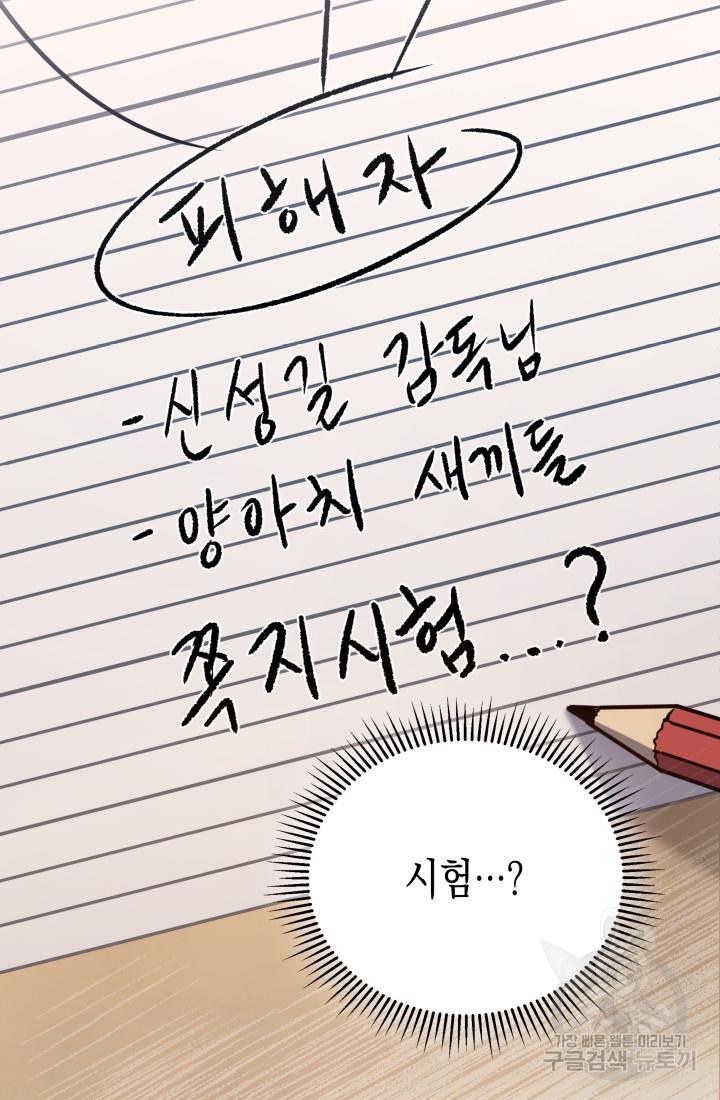 피해자
-신성길 감독님
-양아치 새끼들
쪽지시험...?
시험...?
가장 빠른 웹툰 미리보기
구글검색 뉴토끼